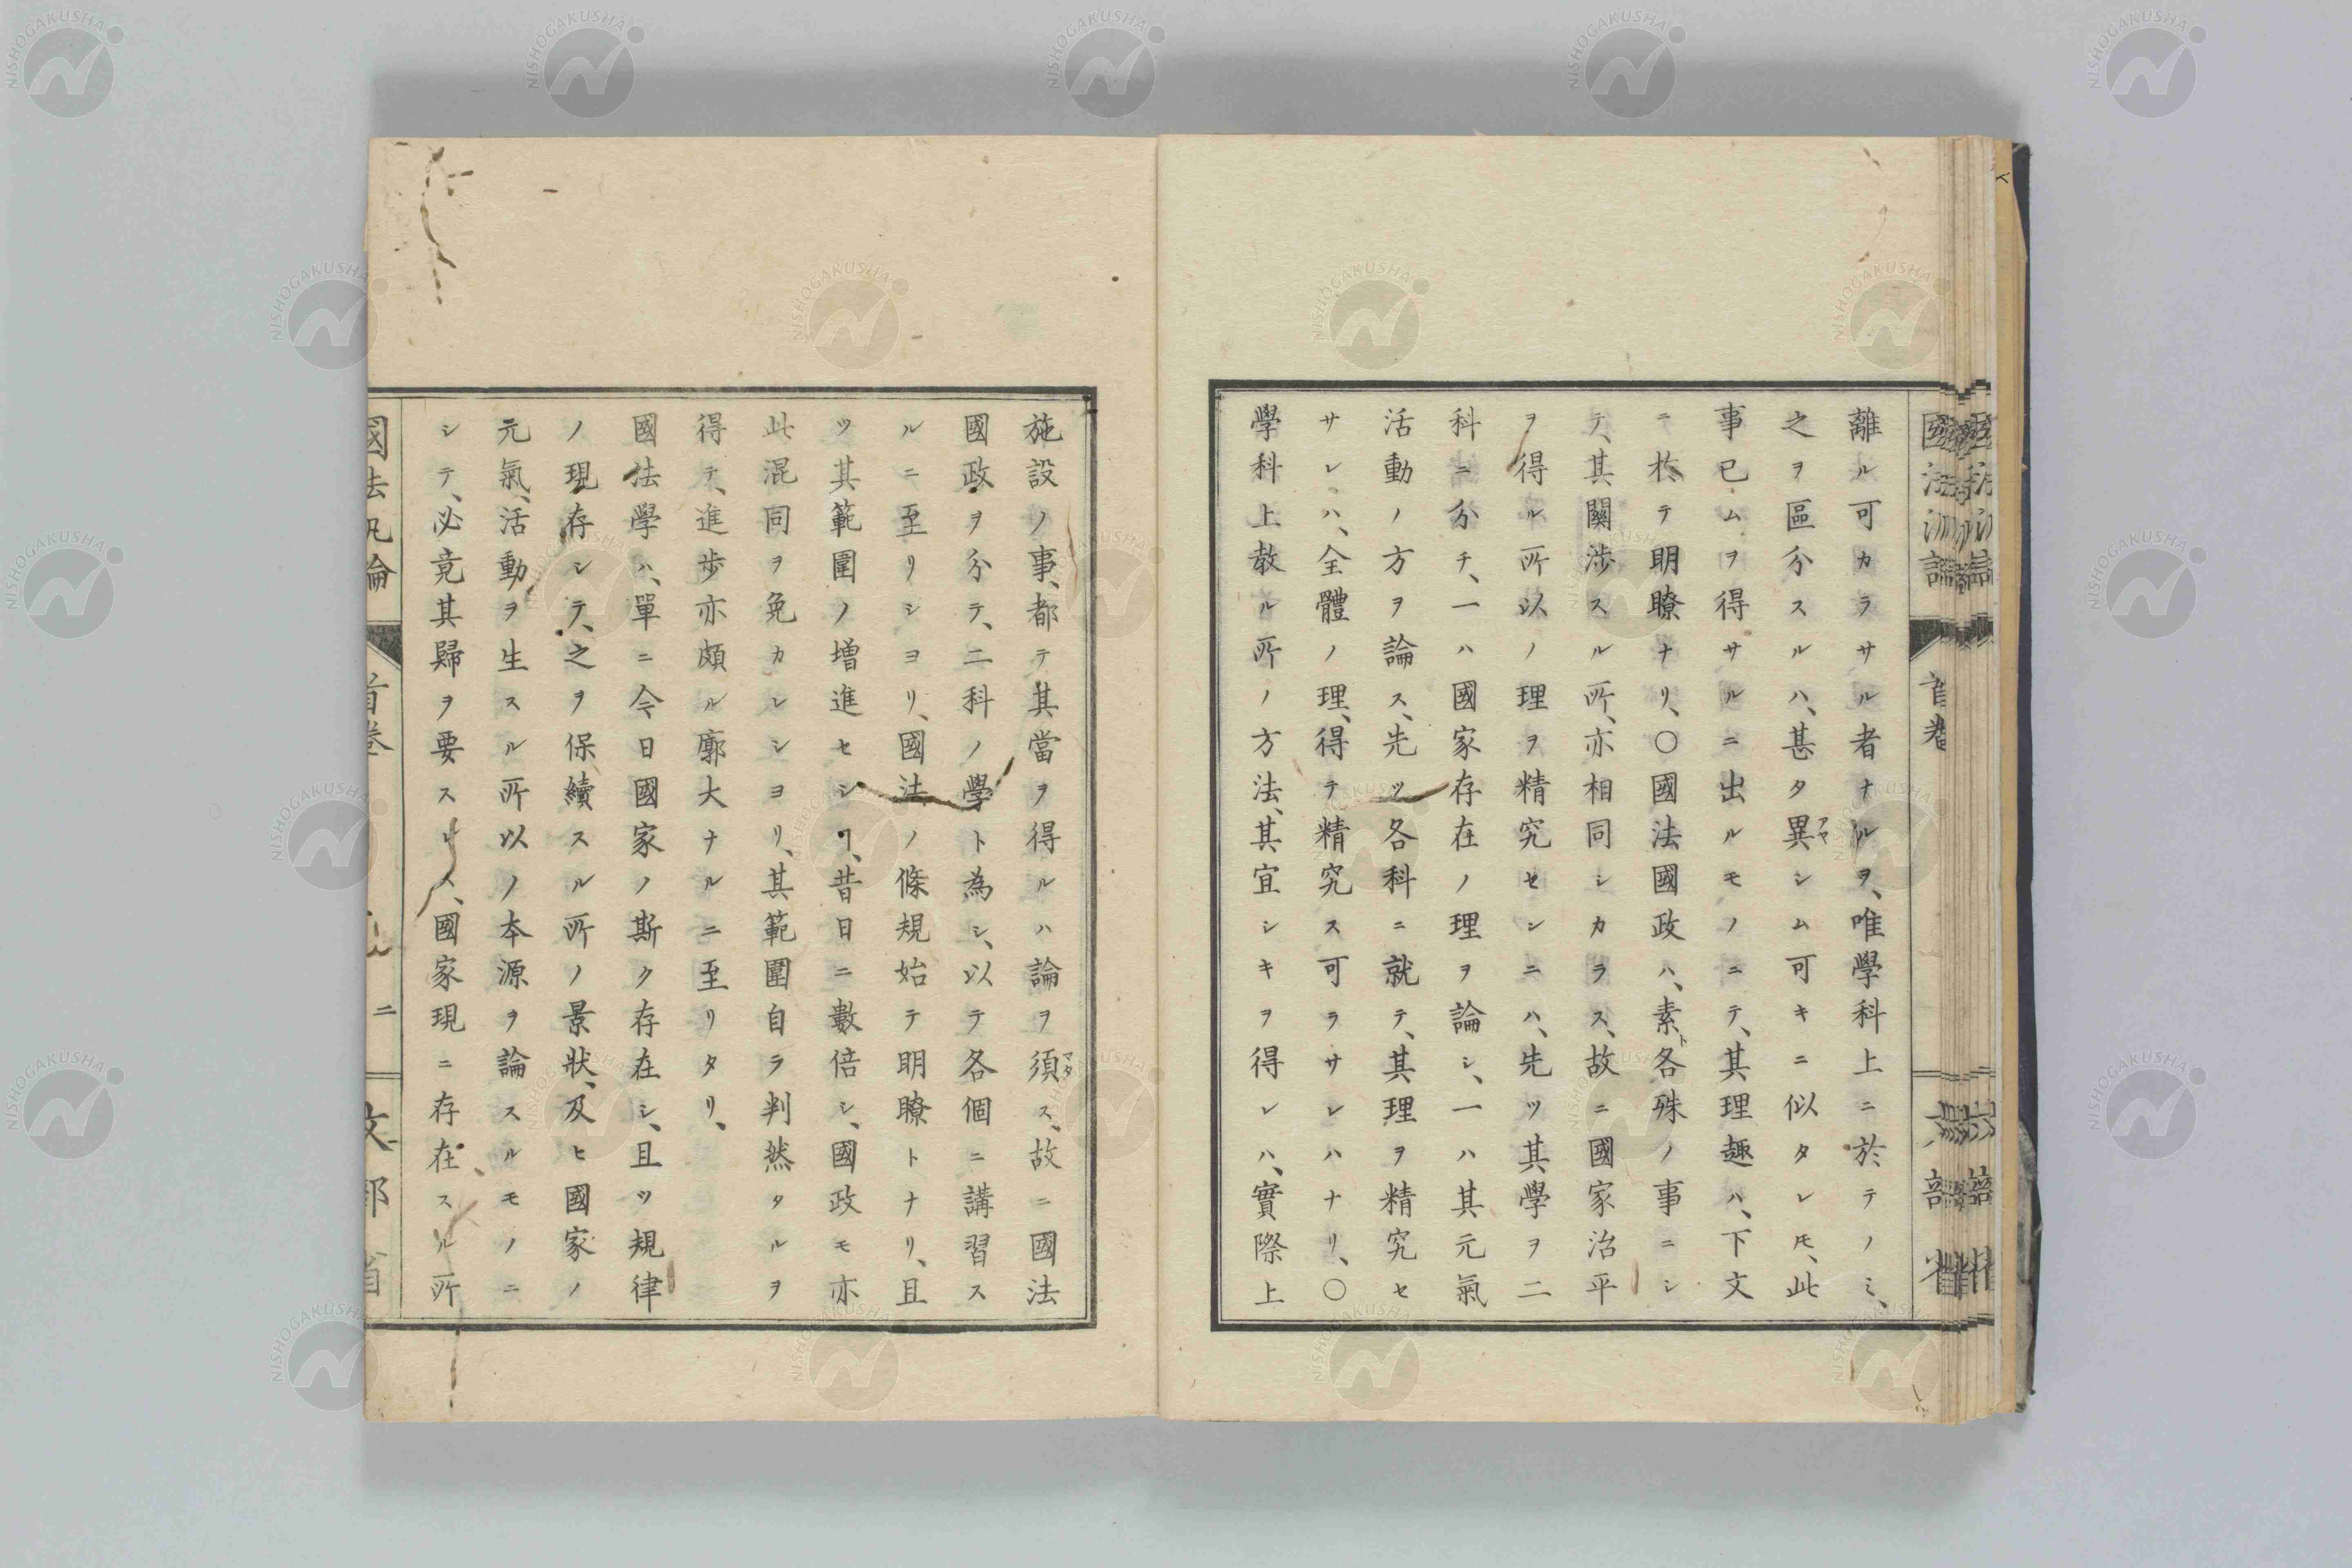 離ル可カラサル者ナルヲ、唯學科上ニ於テノミ、
之ヲ區分スルハ、甚タ異シム可キニ似タレ𪜈、此
アヤ
事已ムヲ得サルニ出ルモノニテ、其理趣ハ、下文
ニ於テ明瞭ナリ、〇國法國政ハ、素ト各殊ノ事ニシ
テ、其關渉スル所、亦相同シカラス、故ニ國家治平
ヲ得ル所以ノ理ヲ精究センニハ、先ツ其學ヲ二
科ニ分チ、一ハ國家存在ノ理ヲ論シ、一ハ其元氣
活動ノ方ヲ論ス、先ツ各科ニ就テ、其理ヲ精究セ
サレハ、全體ノ理、得テ精究ス可ラサレハナリ、〇
學科上敎ル所ノ方法、其宜シキヲ得レハ、實際上
施設ノ事、都テ其當ヲ得ルハ論ヲ須ス、故ニ國法
マタ
國政ヲ分テ、二科ノ學ト為シ、以テ各個ニ講習ス
ルニ至リシヨリ、國法ノ條規始テ明瞭トナリ、且
ツ其範圍ノ増進セシヿ、昔日ニ數倍シ、國政モ亦
此混同ヲ免カレシヨリ、其範圍自ラ判然タルヲ
得テ、進歩亦頗ル廓大ナルニ至リタリ、
國法學ハ、單ニ今日國家ノ斯ク存在シ、且ツ規律
ノ現存シテ、之ヲ保續スル所ノ景狀、及ヒ國家ノ
元氣、活動ヲ生スル所以ノ本源ヲ論スルモノニ
シテ、必竟其歸ヲ要スレハ、國家現ニ存在スル所
國法汎論 首卷 二 文部省
NISHOGAKUSHA